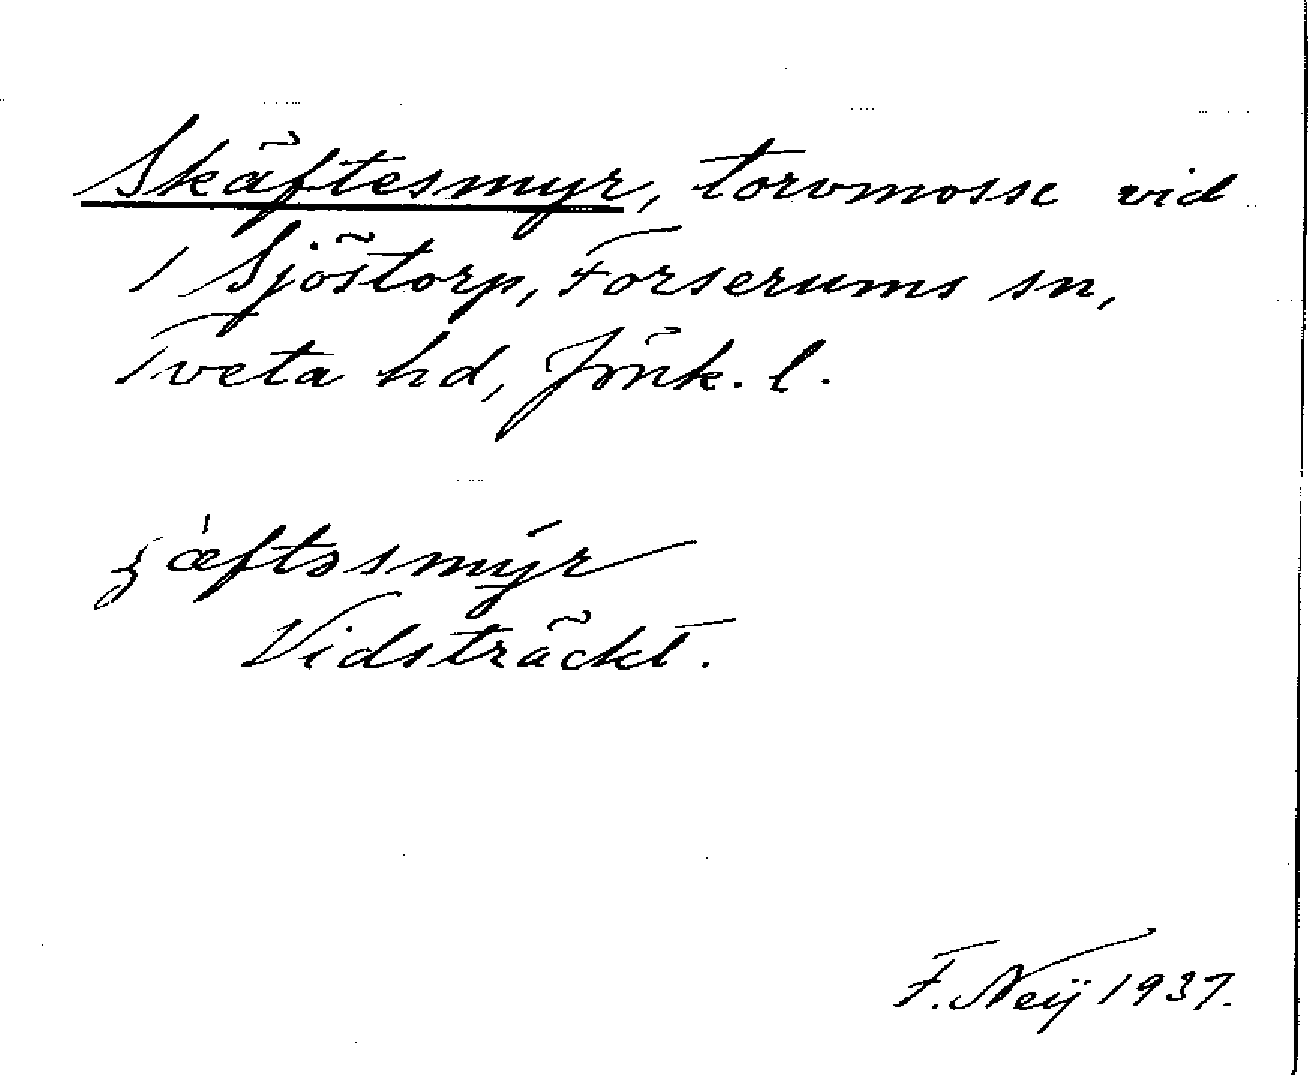 Skäftesmyr, torvmosse vid
/ Sjöstorp, Forserums sn,
Tveta hd, Jönk. l.
ʒæ̀ftəsmýr
Vidsträckt.
F. Neij 1937.